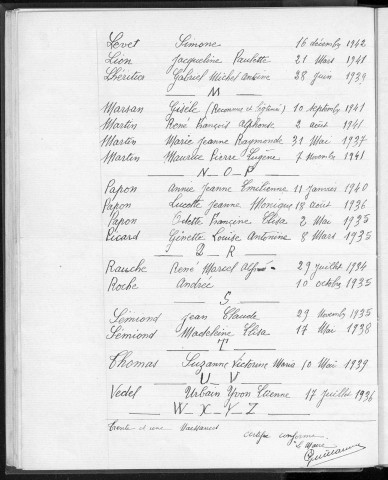 Levet Simone 16 décembre 1942
Lion Jacqueline Paulette 21 Mars 1941
Lhéritier Gabriel Michel Antoine 28 Juin 1939
M
Marsan Gisèle (Reconnue et légitimée) 10 septembre 1941
Martin René François Alphonse 2 août 1941
Martin Marie Jeanne Raymonde 31 Mai 1937
Martin Maurice Pierre Eugène 7 novembre 1941
N - O - P
Papon Annie Jeanne Emilienne 11 janvier 1940
Papon Lucette Jeanne Monique 18 août 1936
Papon Odette Francine Elisa 2 Mai 1935
Picard Ginette Louise Antonine 8 Mars 1935
Q R
Rausche René Marcel 29 juillet 1934
Roche Andrée 10 octobre 1935
S
Sémiond Jean Claude 29 novembre 1935
Sémiond Madeleine Elisa 17 Mai 1938
T
Thomas Suzanne Victorine Maria 10 Mai 1939
U V
Vedel Urbain Yvon Etienne 17 juillet 1936
W - X - Y - Z
Trente et une naissances
certifié conforme
Le Maire